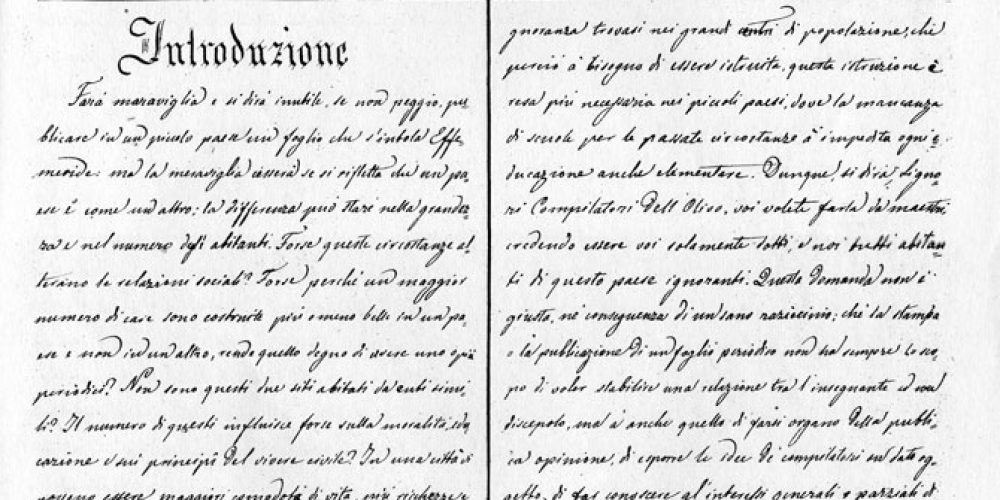 Introduzione
Farà maraviglia e si dirà inutile, se non peggio, pu-
blicare in un piccolo paese un foglio che s'intitola Effe-
meride: ma la meraviglia cesserà se si rifletta che un pa-
ese è come un altro; la differenza può stare nella grandez-
za e nel numero degli abitanti. Forse queste circostanze al-
terano le relazioni sociali? Forse perchè un maggior
numero di case sono costruite più o meno belle in un pa-
ese e non in un altro, rende quello degno di avere uno o più
periodici? Non sono questi due siti abitati da enti simi-
li? Il numero di questi influisce forse sulla moralità, edu-
cazione e sui principii del vivere civile? In una città vi
possono essere maggiori comodità di vita, più ricchezze e
gnoranza trovasi nei grandi centri di popolazione, che
perciò à bisogno di essere istruita, questa istruzione è
resa più necessaria nei piccoli paesi, dove la mancanza
di scuole per le passate circostanze à impedita ogni e-
ducazione anche elementare. Dunque, si dirà, Signo-
ri Compilatori Dell'Olivo, voi volete farla da maestri,
credendo essere voi solamente dotti, e noi tutti abitan-
ti di questo paese ignoranti. Questa domanda non è
giusta, nè conseguenza di un sano raziocinio; chè la stampa
o la publicazione di un foglio periodico non ha sempre lo sco-
po di voler stabilire una relazione tra l'insegnante ed un
discepolo, ma à anche quello di farsi organo della publi-
ca opinione, di esporre le idee de' compilatori su dato og-
getto, di far conoscere gl'interessi generali e parziali di